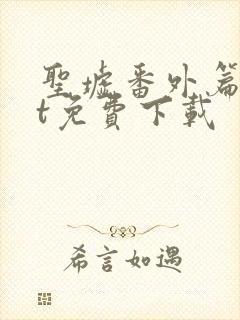 聖墟番外篇
t免費下載
希言如遇